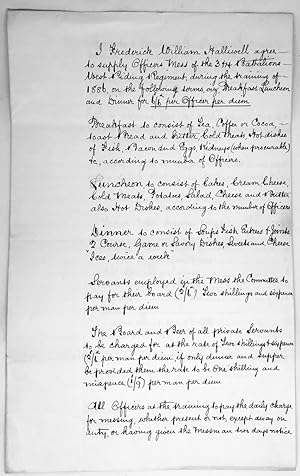 I Frederick William Halliwell agree
to supply Officers Mess of the 3rd & 4th Battalions
West Riding Regiment, during the training of
1886, on the following terms, Breakfast Luncheon
and Dinner for 6/6 per Officer per diem
Breakfast to consist of Tea, Coffee or Cocoa,
toast & Bread and Butter, Cold Meats, Hot dishes
of Fish, Bacon and Eggs, Kidneys (when procurable)
&c, according to number of Officers.
Luncheon to consist of Cakes, Cream Cheese,
Cold Meats, Potatoes, Salad, Cheese and Butter
also Hot Dishes, according to the number of Officers
Dinner to consist of Soups Fish Entrees & Joints
2 Course, Game or Savory Dishes, Sweets and Cheese
"Ices, twice a week"
Servants employed in the Mess the Committee to
pay for their board (2/6) Two shillings and sixpence
per man per diem
The Board and Beer of all private Servants
to be charged for at the rate of Two shillings & sixpence
(2/6) per man per diem, if only dinner and supper
be provided then the rate to be One shilling and
ninepence (1/9) per man per diem.
All Officers at the training to pay the daily charge
for messing, whether present or not, except away on
duty, or having given the Messman two days notice